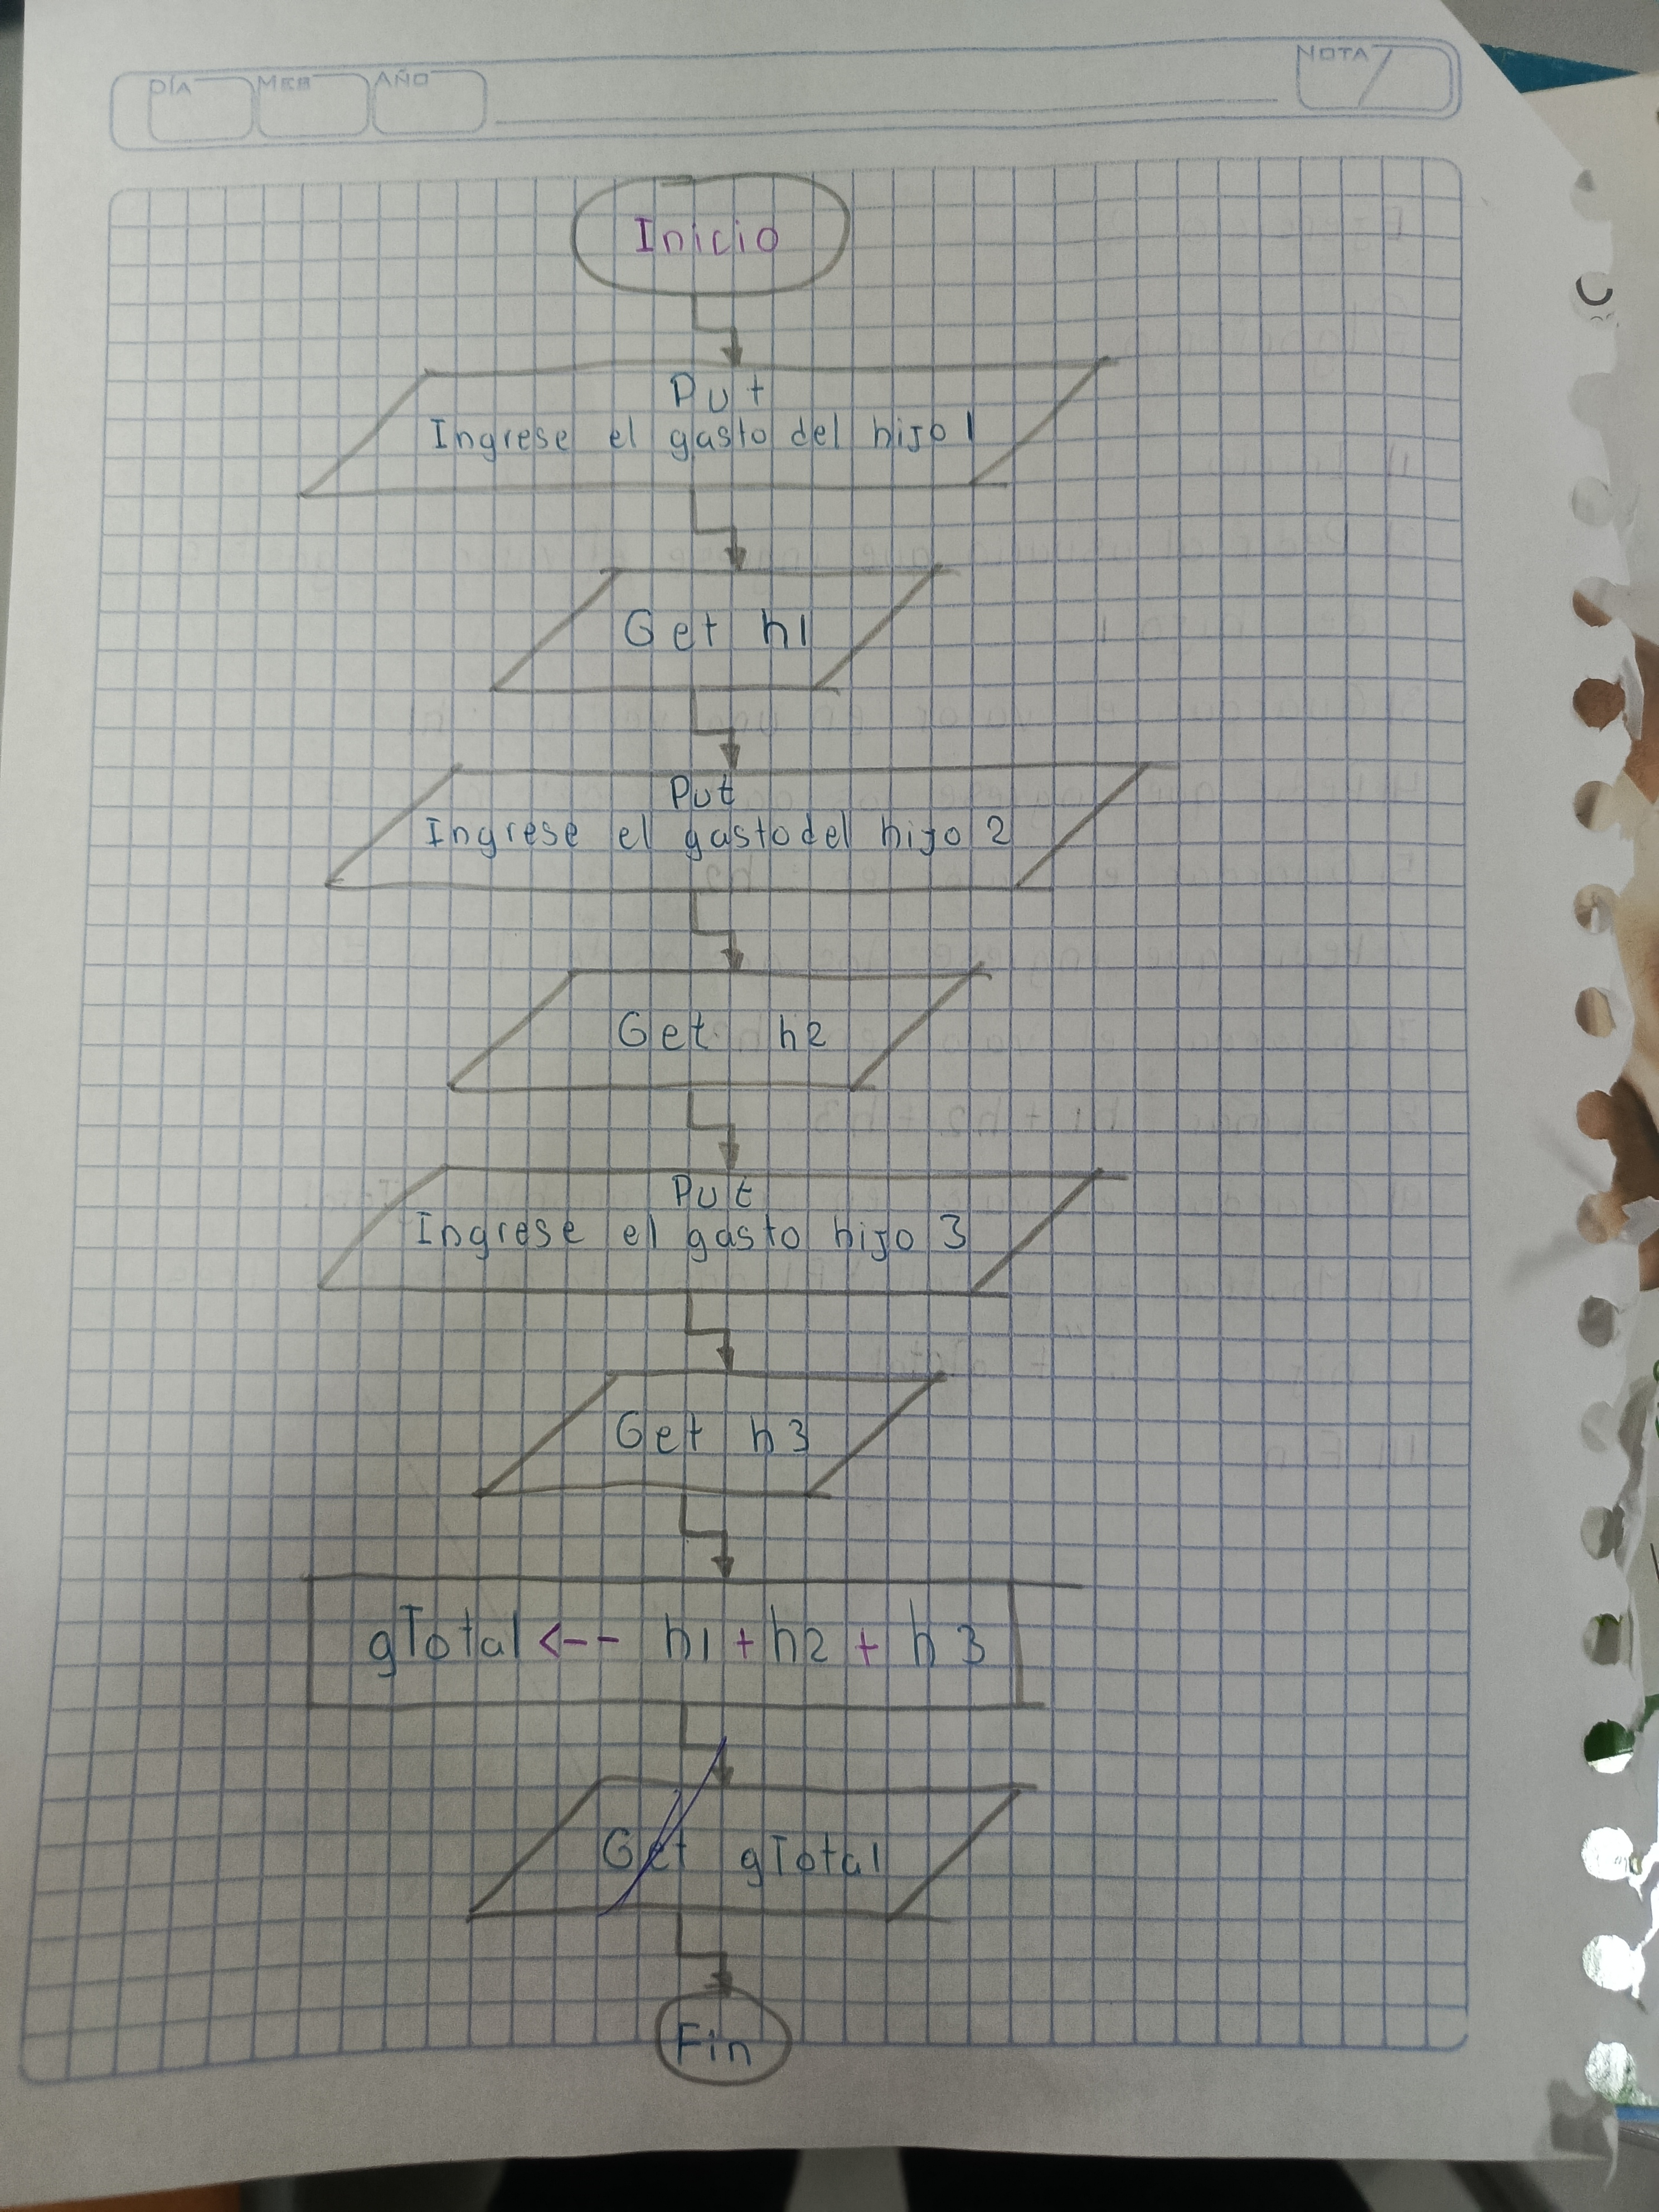 DÍA MES AÑO NOTA
Inicio
Put
Ingrese el gasto del hijo 1
Get h1
Put
Ingrese el gasto del hijo 2
Get h2
Put
Ingrese el gasto hijo 3
Get h3
gTotal <-- h1 + h2 + h3
Get gTotal
Fin